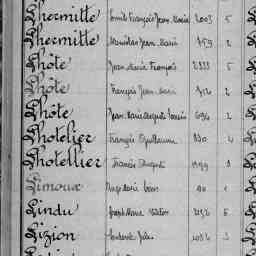 Lhermitte Louis François Jean Marie 2003 5
Lhermitte Stanislas Jean Marie 759 2
Lhôte Jean Marie François 2222 5
Lhôte François Jean Marie 712 2
Lhôte Jean Marie Auguste Louis 694 2
Lhotelier François Guillaume 4
Lhotellier Francis August 1999
Limoux Ange Marie 90 1
Lindu Joseph Marie Victor 2152 5
Lizion Jules 1032 3